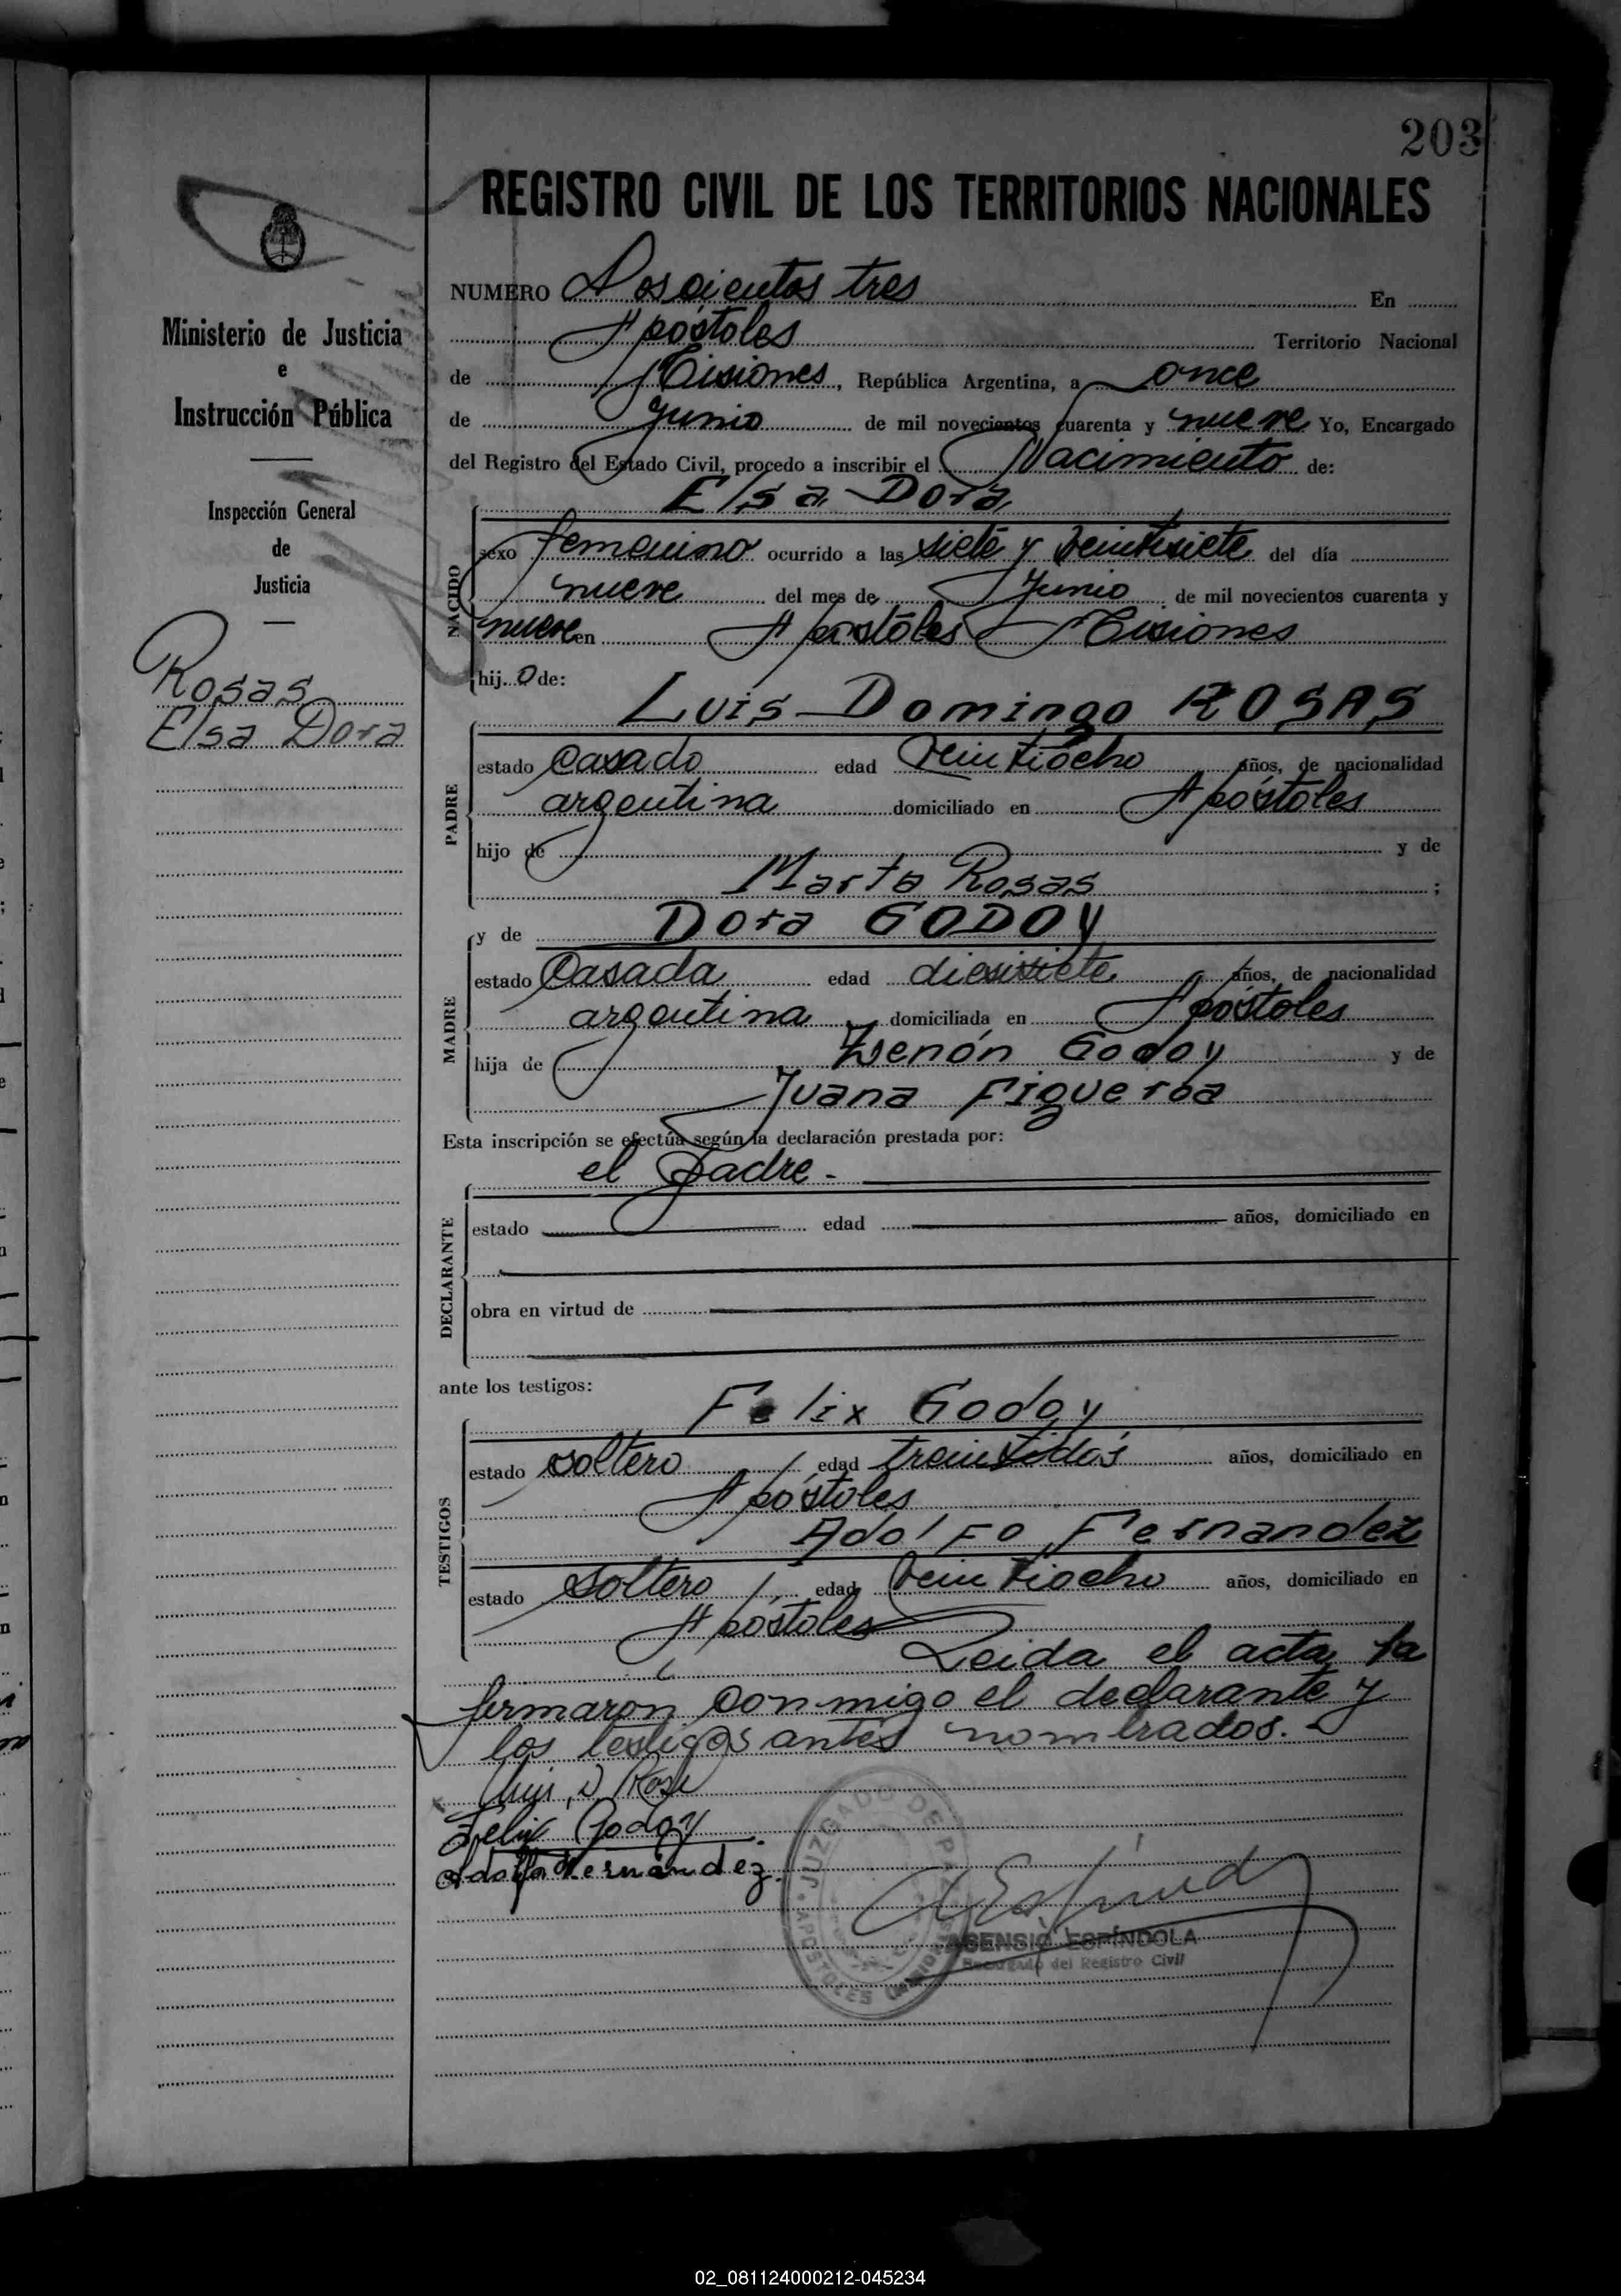 203
REGISTRO CIVIL DE LOS TERRITORIOS NACIONALES
Ministerio de Justicia
e
Instrucción Pública
Inspección General
de
Justicia
Rosas
Elsa Dora
NUMERO Doscientos tres En
Apóstoles Territorio Nacional
de Misiones, República Argentina, a once
de Junio de mil novecientos cuarenta y nueve Yo, Encargado
del Registro del Estado Civil, procedo a inscribir el Nacimiento de:
Elsa Dora
NACIDO
sexo femenino ocurrido a las siete y veintisiete del día
nueve del mes de Junio de mil novecientos cuarenta y
nueve en Apóstoles Misiones
hij.o de:
Luis Domingo ROSAS
PADRE
estado Casado edad veintiocho años, de nacionalidad
argentina domiciliado en Apóstoles
hijo de y de
Marta Rosas ;
y de Dora GODOY
MADRE
estado Casada edad diesisiete años, de nacionalidad
argentina domiciliada en Apóstoles
hija de Zenón Godoy y de
Juana Figueroa
Esta inscripción se efectúa según la declaración prestada por:
el Padre.-
DECLARANTE
estado edad años, domiciliado en
obra en virtud de
ante los testigos:
Felix Godoy
TESTIGOS
estado soltero edad treintidós años, domiciliado en
Apóstoles
Adolfo Fernandez
estado soltero edad veintiocho años, domiciliado en
Apóstoles
Leida el acta la
firmaron conmigo el declarante y
los testigos antes nombrados.-
Luis D. Rosa
Felix Godoy
Adolfo Fernández
JUZGADO DE PAZ
APOSTOLES
ASENSIO ESPÍNDOLA
Encargado del Registro Civil
02_081124000212-045234